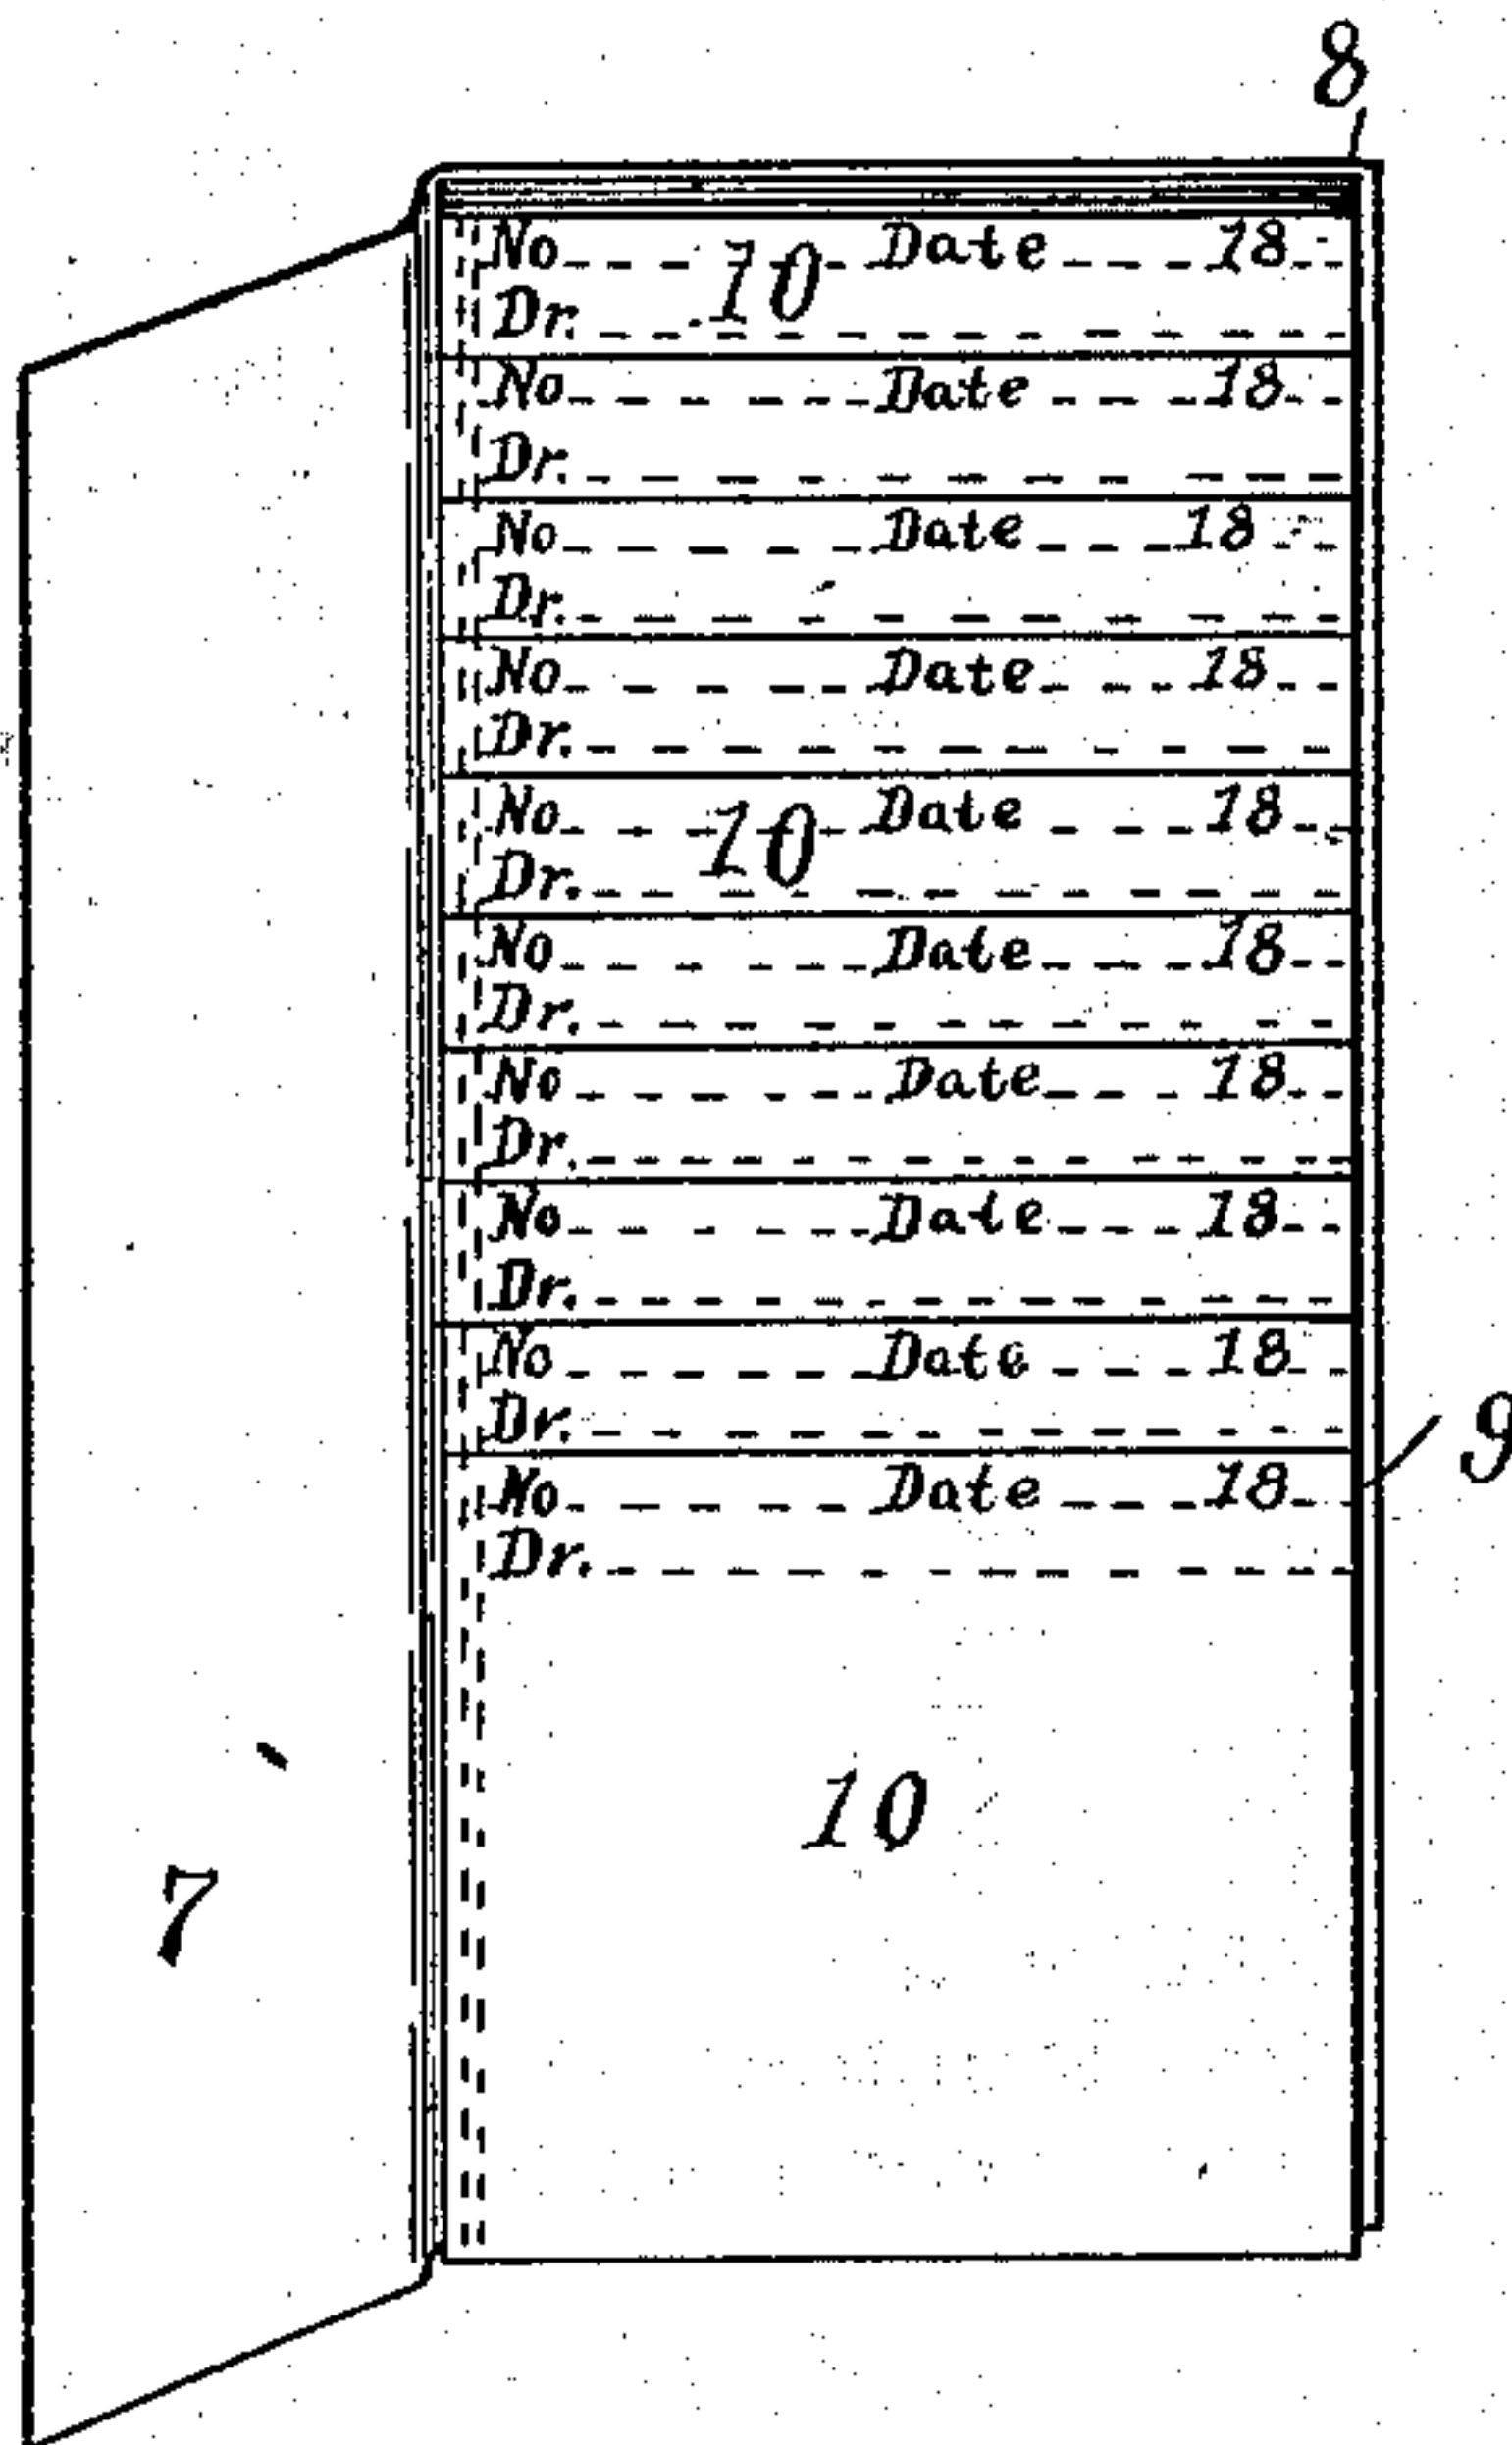 8
No Date 18
10
Dr.
No Date 18
Dr.
No Date 18
Dr.
No Date 18
Dr.
No Date 18
10
Dr.
No Date 18
Dr.
No Date 18
Dr.
No Date 18
Dr.
No Date 18
Dr.
9
No Date 18
Dr.
10
7